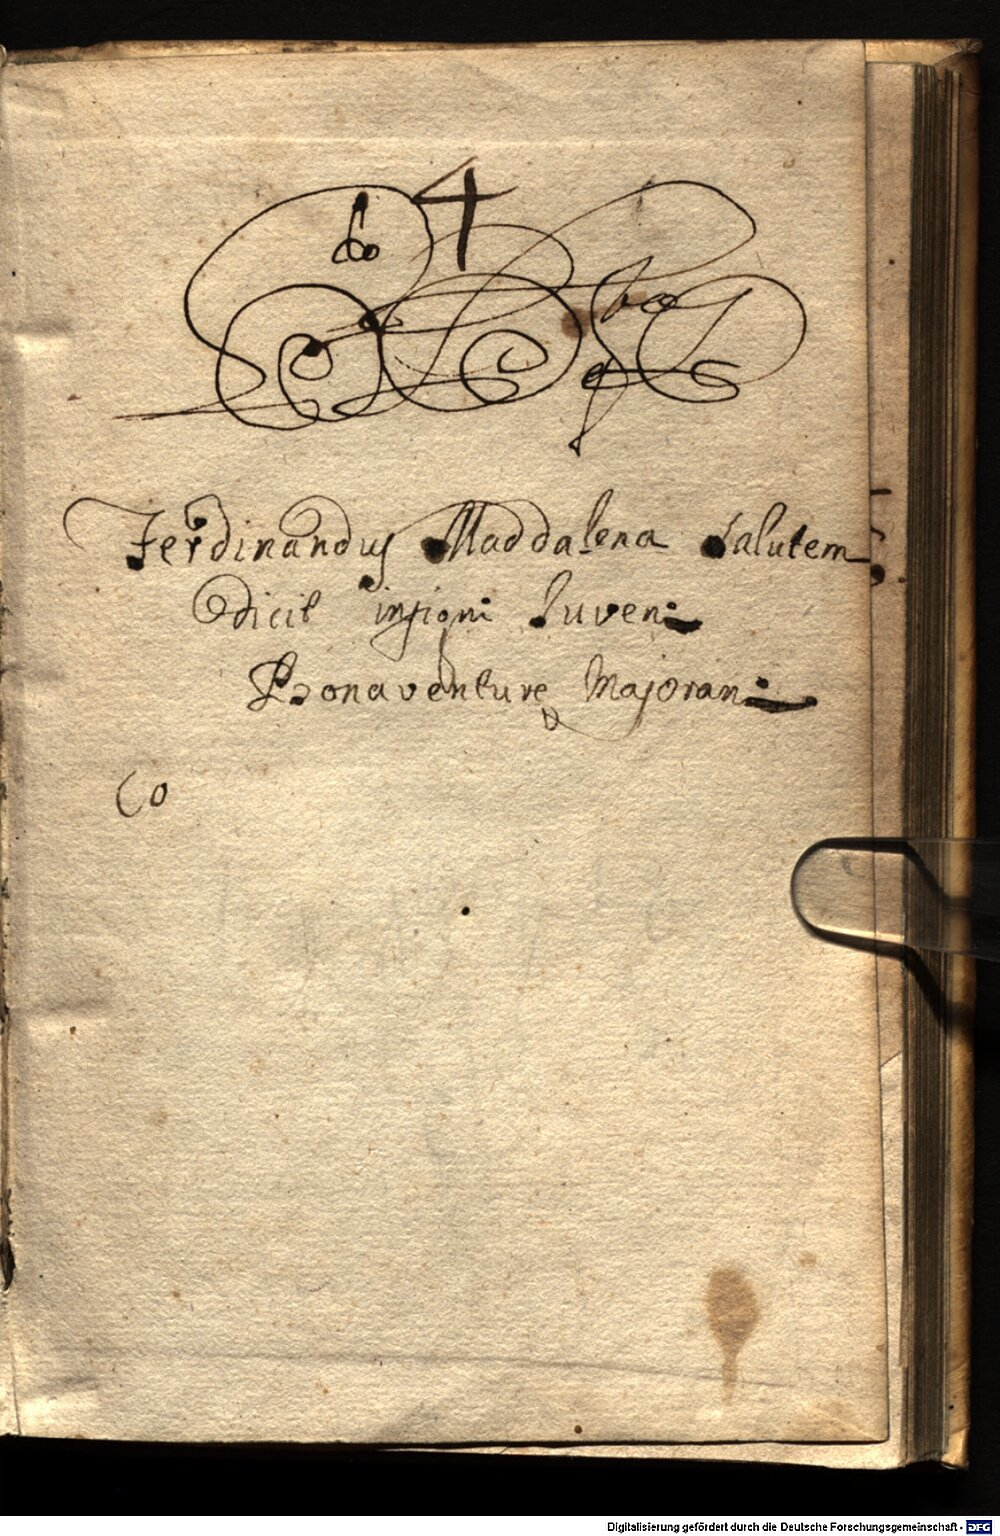 do 4
Ferdinandus Maddalena Salutem
dicit insigni Iuveni
Bonaventurę Majorani
Co
Digitalisierung gefördert durch die Deutsche Forschungsgemeinschaft - DFG